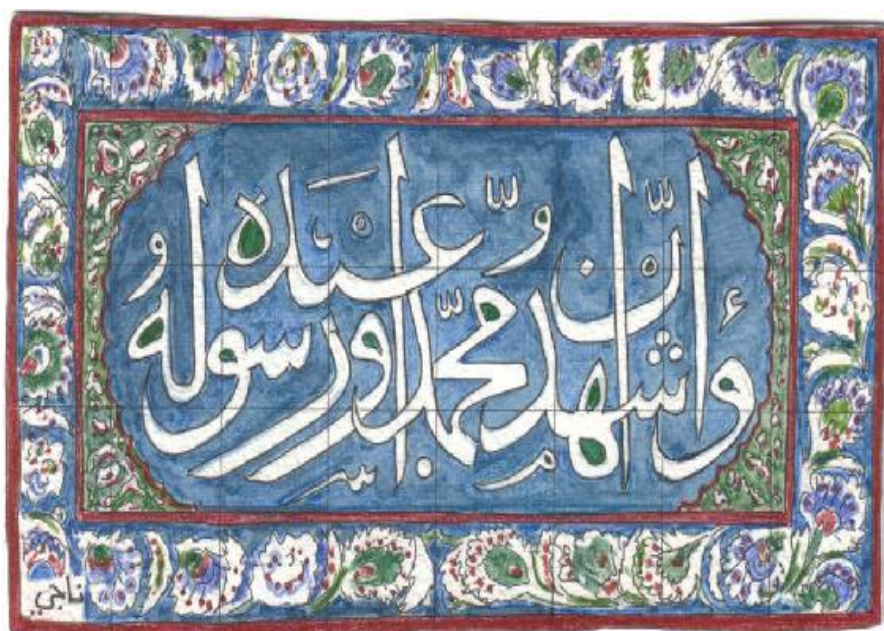 وأشهد أنّ محمّدًا عبده ورسوله
ناجي